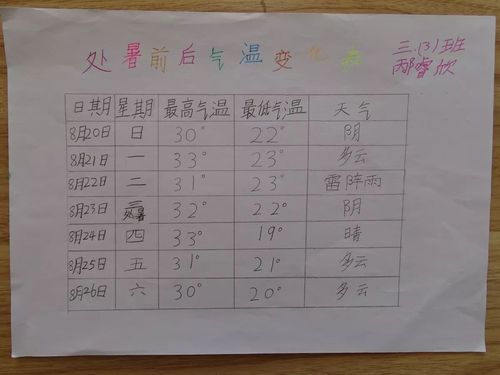 处暑前后气温变化表
三.(3)班
邴睿欣
日期 星期 最高气温 最低气温 天气
8月20日 日 30° 22° 阴
8月21日 一 33° 23° 多云
8月22日 二 31° 23° 雷阵雨
8月23日 三处暑 32° 22° 阴
8月24日 四 33° 19° 晴
8月25日 五 31° 21° 多云
8月26日 六 30° 20° 多云